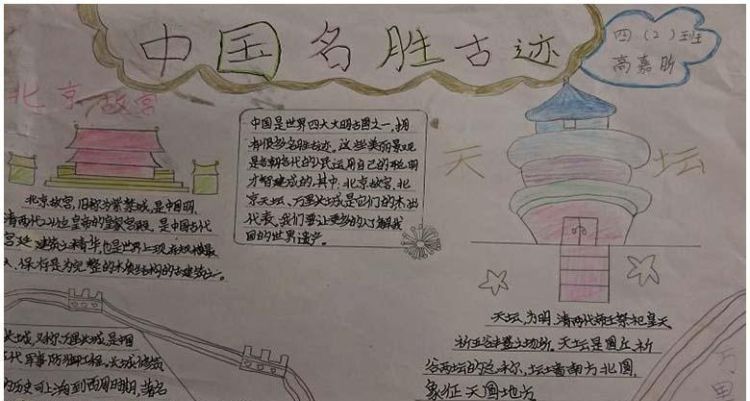 中国名胜古迹
四(2)班
高嘉昕
北京故宫
北京故宫,旧称为紫禁城,是中国明
清两代24位皇帝的皇家宫殿,是中国古代
宫廷建筑之精华,也是世界上现存规模最
大、保存最为完整的木质结构的古建筑之一。
中国是世界四大文明古国之一,拥
有很多名胜古迹。这些美丽景观
是各朝各代的人民运用自己的聪明
才智建成的,其中:北京故宫、北
京天坛、万里长城是它们的杰出
代表,我们要让更多的人了解我
国的世界遗产。
天坛
天坛,为明、清两代帝王祭祀皇天、
祈五谷丰登之场所。天坛是圜丘、祈
谷两坛的总称,坛墙南方北圆,
象征天圆地方
长城,又称万里长城,是中国
古代军事防御工程。长城修筑
的历史可上溯到西周时期,著名
万里